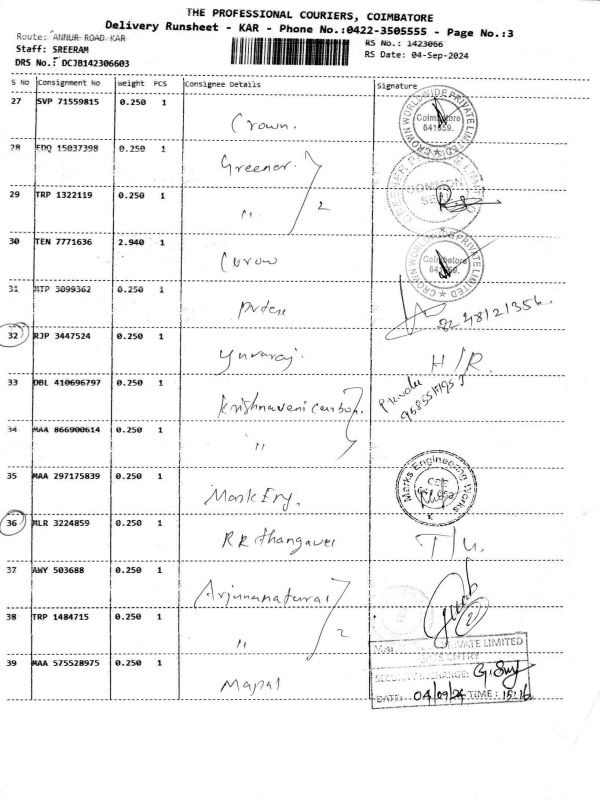 THE PROFESSIONAL COURIERS, COIMBATORE
Delivery Runsheet - KAR - Phone No.:0422-3505555 - Page No.:3
Route: ANNUR ROAD KAR
RS No.: 1423066
Staff: SREERAM
RS Date: 04-Sep-2024
DRS No.: DCJB142306603
S No Consignment No Weight PCS Consignee Details Signature
27 SVP 71559815 0.250 1 Crown.
CROWN WORLDWIDE PRIVATE LIMITED
Coimbatore
641659.
28 EDQ 15037398 0.250 1 Greener.
29 TRP 1322119 0.250 1 " 2
30 TEN 7771636 2.940 1 Crown
CROWN WORLDWIDE PRIVATE LIMITED
Coimbatore
31 MTP 3099362 0.250 1
8248121356
32 RJP 3447524 0.250 1 Yuvaraj. H/R.
33 DBL 410696797 0.250 1 Krishnaveni carbon.
34 MAA 866900614 0.250 1 "
35 MAA 297175839 0.250 1 Mark Eng.
Marks Engineering Works
CBE
36 MLR 3224859 0.250 1 RR thangavel T/U.
37 AWY 503688 0.250 1 Arjunanatural
38 TRP 1484715 0.250 1 " 2
2
PRIVATE LIMITED
39 MAA 575528975 0.250 1
SECURITY INCHARGE:
DATE: 04/09/24 TIME: 15:16